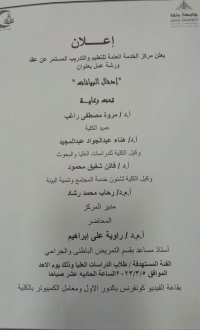 إعـــلان
يعلن مركز الخدمة العامة للتعليم والتدريب المستمر عن عقد
ورشة عمل بعنوان
"إدخال البيانات"
تحت رعاية
أ.د/ مروة مصطفى راغب
عميد الكلية
أ.د/ هناء عبدالجواد عبدالمجيد
وكيل الكلية للدراسات العليا والبحوث
أ.د/ فاتن شفيق محمود
وكيل الكلية لشئون خدمة المجتمع وتنمية البيئة
أ.م.د/ رحاب محمد رشاد
مدير المركز
المحاضر
أ.م.د/ راوية على إبراهيم
أستاذ مساعد بقسم التمريض الباطنى والجراحى
الفئة المستهدفة / طلاب الدراسات العليا وذلك يوم الاحد
الموافق ٢٠٢٣/٣/٥ الساعة الحاديه عشر صباحا
بقاعة الفيديو كونفرانس بالدور الاول ومعامل الكمبيوتر بالكلية